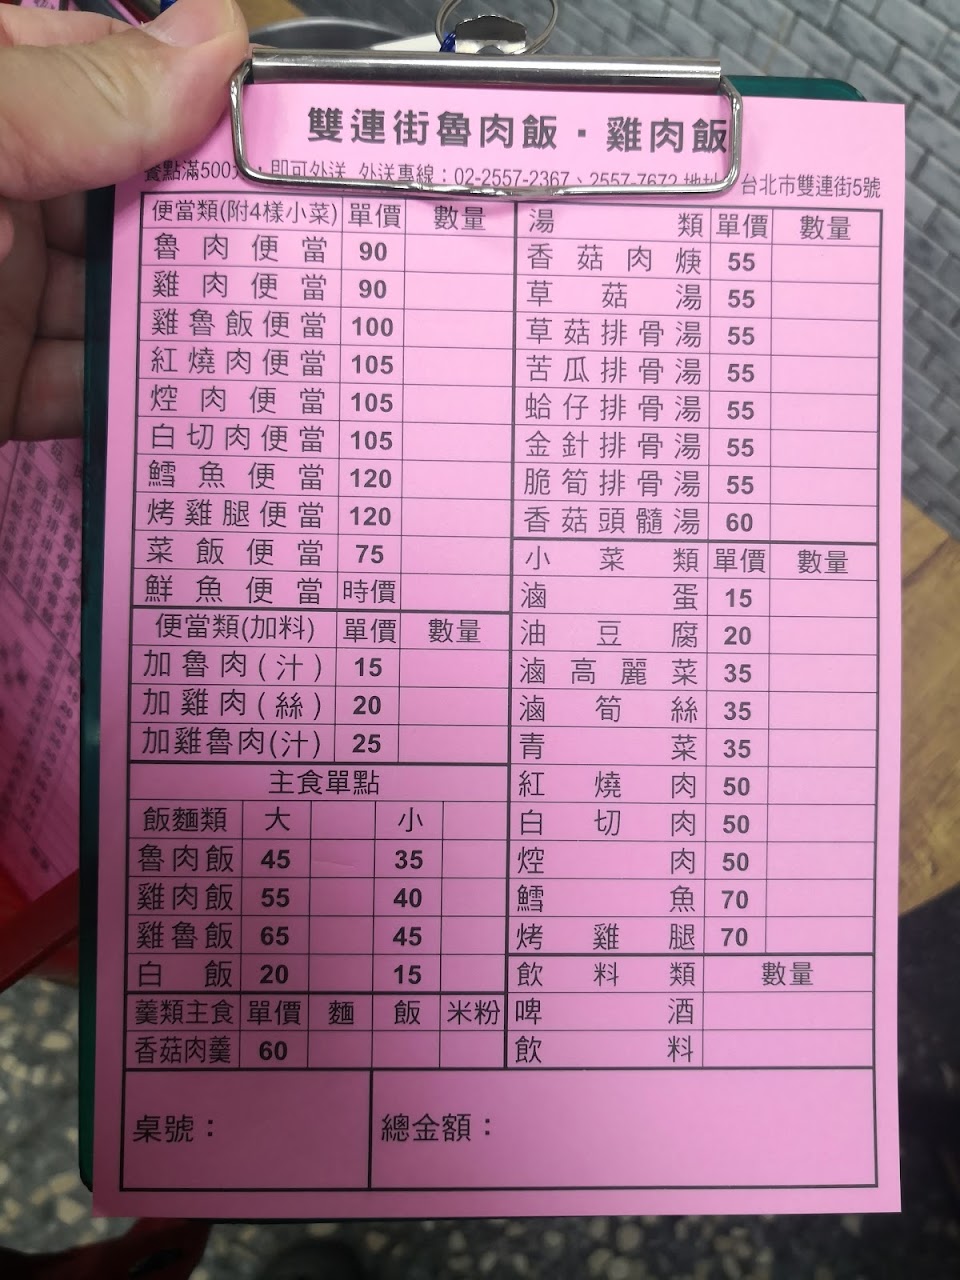 雙連街魯肉飯·雞肉飯
餐點滿500元,即可外送 外送專線:02-2557-2367、2557-7672 地址 台北市雙連街5號
便當類(附4樣小菜) 單價 數量
魯肉便當 90
雞肉便當 90
雞魯飯便當 100
紅燒肉便當 105
焢肉便當 105
白切肉便當 105
鱈魚便當 120
烤雞腿便當 120
菜飯便當 75
鮮魚便當 時價
便當類(加料) 單價 數量
加魯肉(汁) 15
加雞肉(絲) 20
加雞魯肉(汁) 25
主食單點
飯麵類 大 小
魯肉飯 45 35
雞肉飯 55 40
雞魯飯 65 45
白飯 20 15
羹類主食 單價 麵 飯 米粉
香菇肉羹 60
湯類 單價 數量
香菇肉焿 55
草菇湯 55
草菇排骨湯 55
苦瓜排骨湯 55
蛤仔排骨湯 55
金針排骨湯 55
脆筍排骨湯 55
香菇頭髓湯 60
小菜類 單價 數量
滷蛋 15
油豆腐 20
滷高麗菜 35
滷筍絲 35
青菜 35
紅燒肉 50
白切肉 50
焢肉 50
鱈魚 70
烤雞腿 70
飲料類 數量
啤酒
飲料
桌號:
總金額: